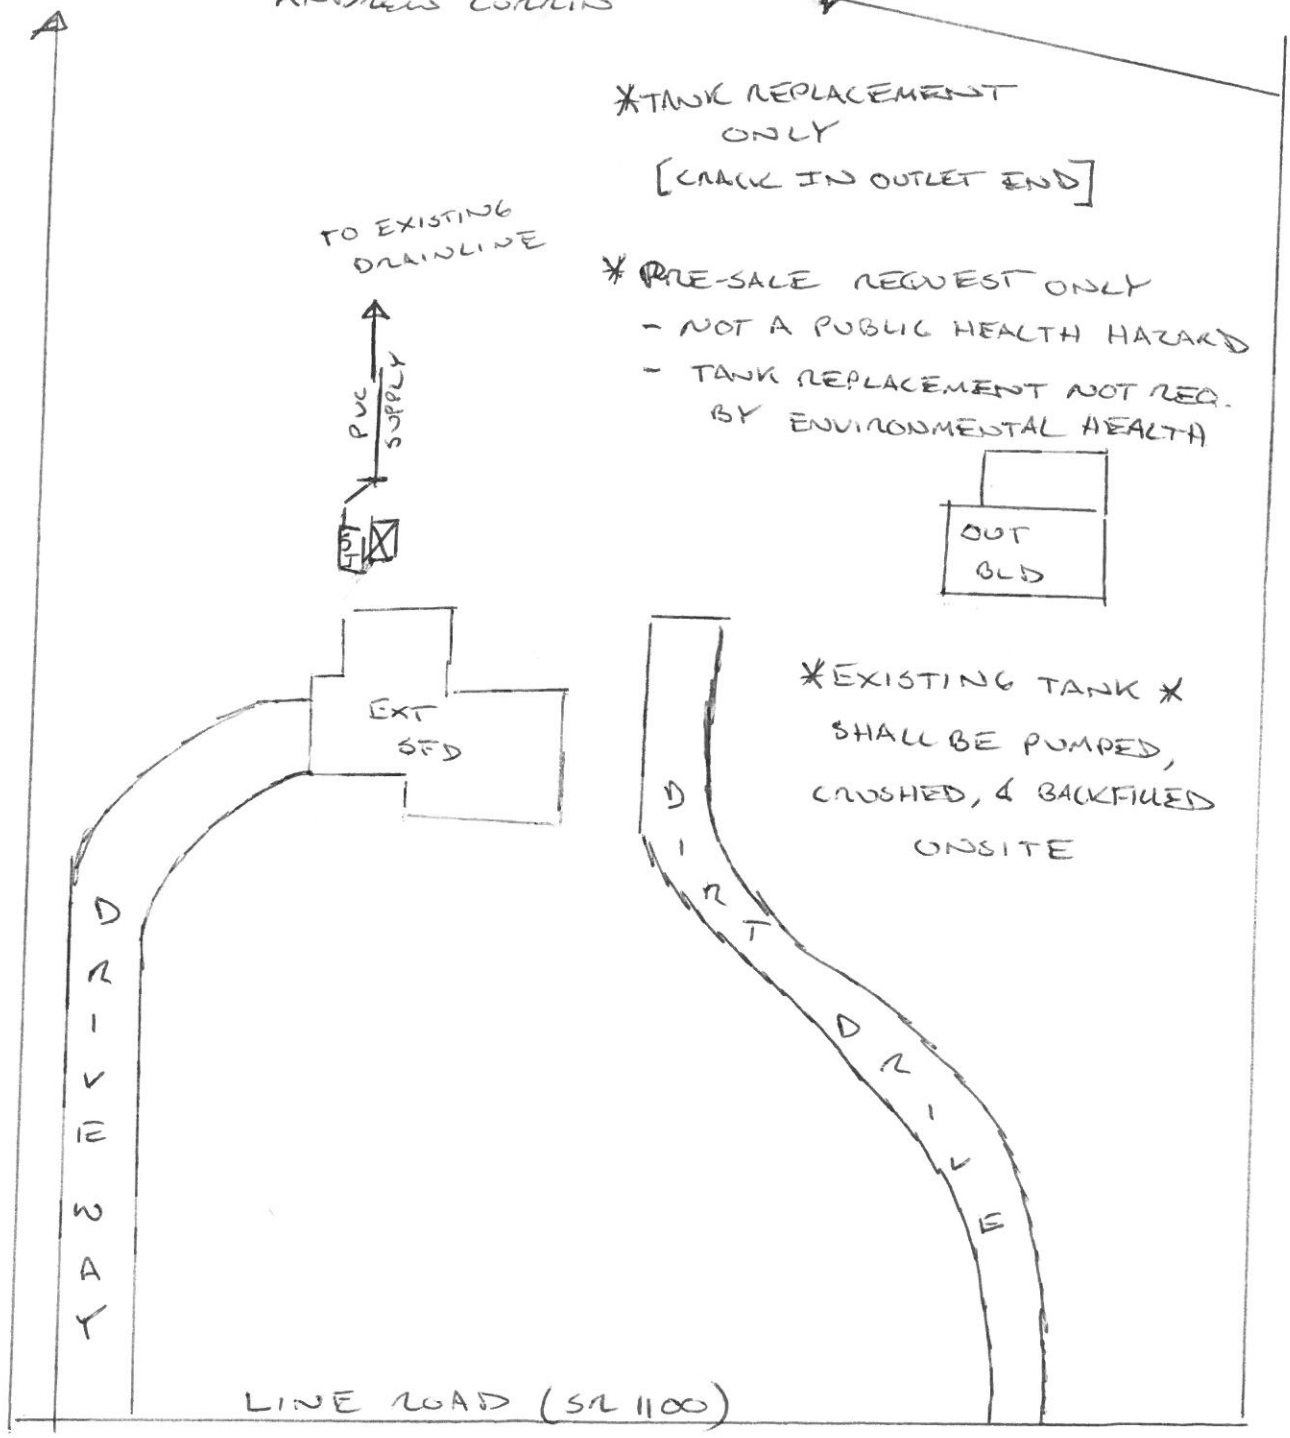 *TANK REPLACEMENT
ONLY
[CRACK IN OUTLET END]
TO EXISTING
DRAINLINE
* PRE-SALE REQUEST ONLY
- NOT A PUBLIC HEALTH HAZARD
- TANK REPLACEMENT NOT REQ.
BY ENVIRONMENTAL HEALTH
PVC
SUPPLY
ST
OUT
BLD
EXT
SFD
*EXISTING TANK *
SHALL BE PUMPED,
CRUSHED, & BACKFILLED
ONSITE
DRIVEWAY
DIRT DRIVE
LINE ROAD (SR 1100)